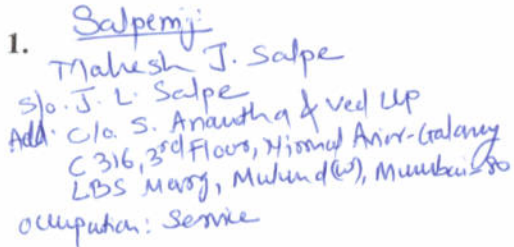 Salpemj:
1.
Mahesh J. Salpe
S/o. J. L. Salpe
Add: C/o. S. Anantha & Ved LLP
C 316, 3rd Floor, Nirmal Avior-Galaxy
LBS Marg, Mulund (W), Mumbai-80
Occupation: Service